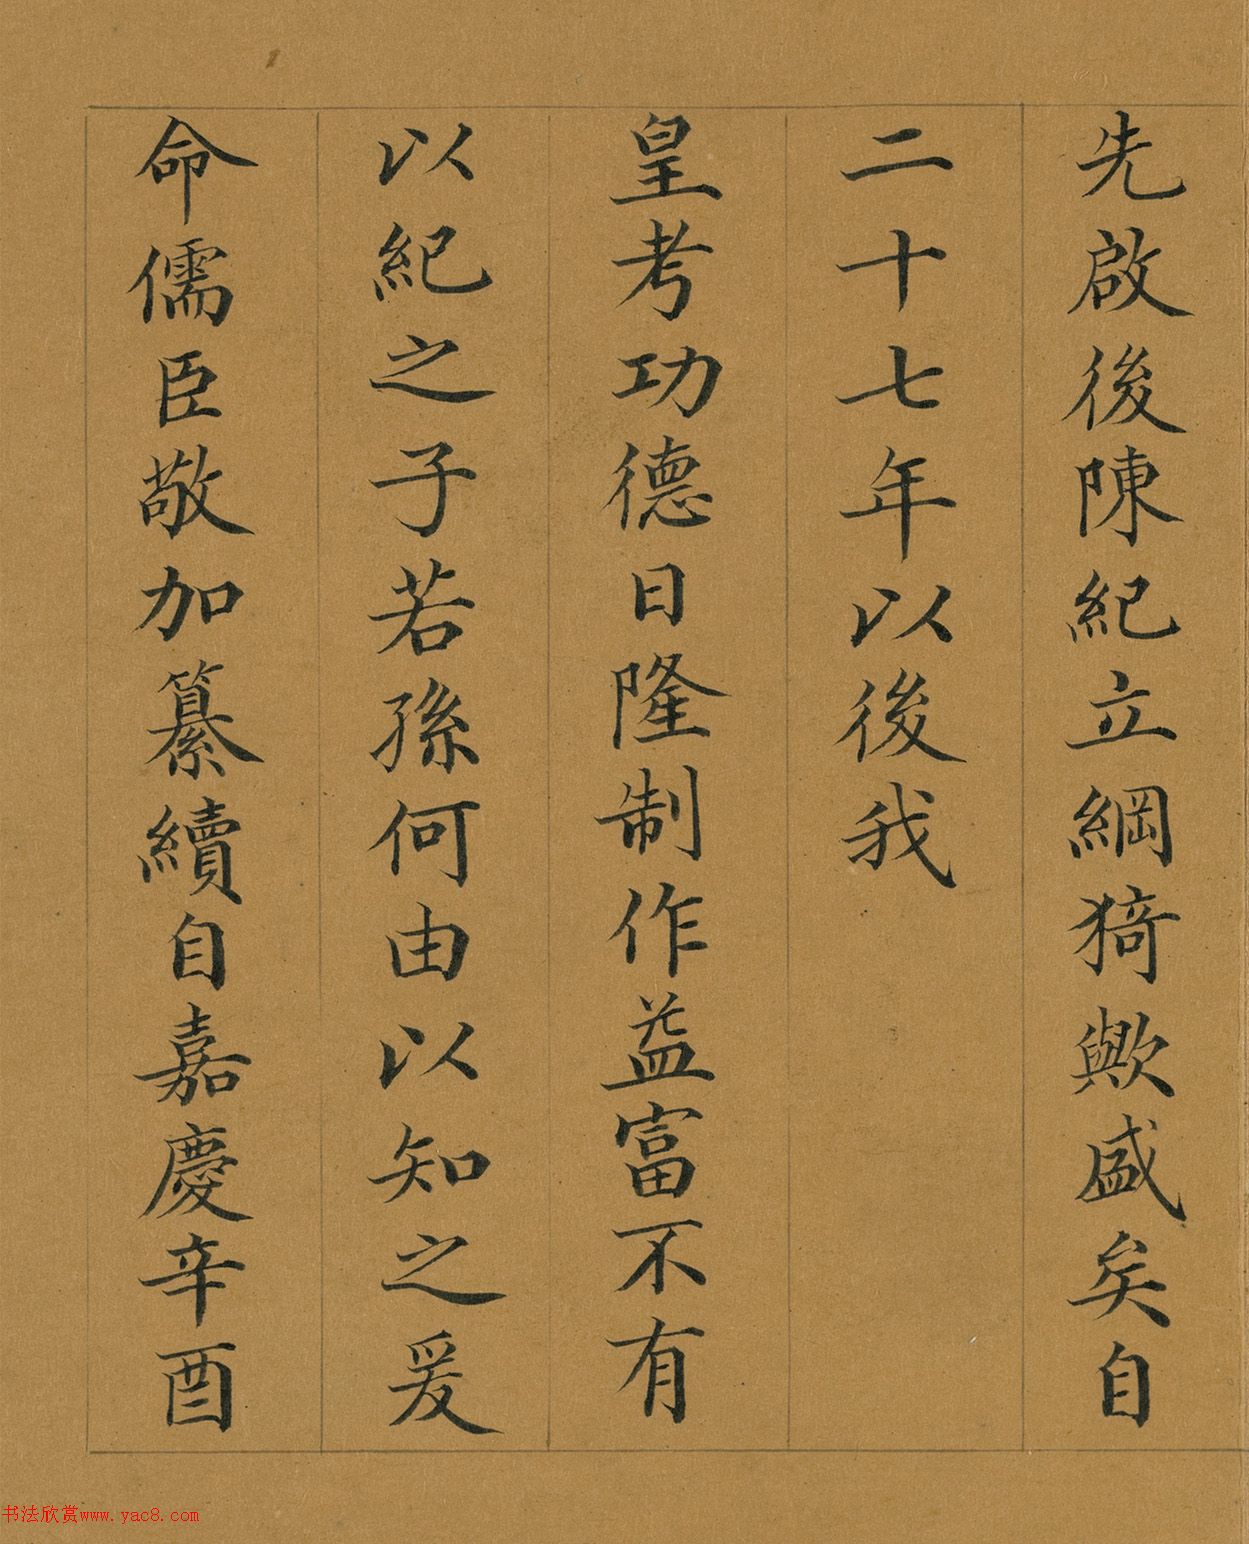 先啟後陳紀立綱猗歟盛矣自
二十七年以後我
皇考功德日隆制作益富不有
以紀之子若孫何由以知之爰
命儒臣敬加纂續自嘉慶辛酉
书法欣赏www.yac8.com